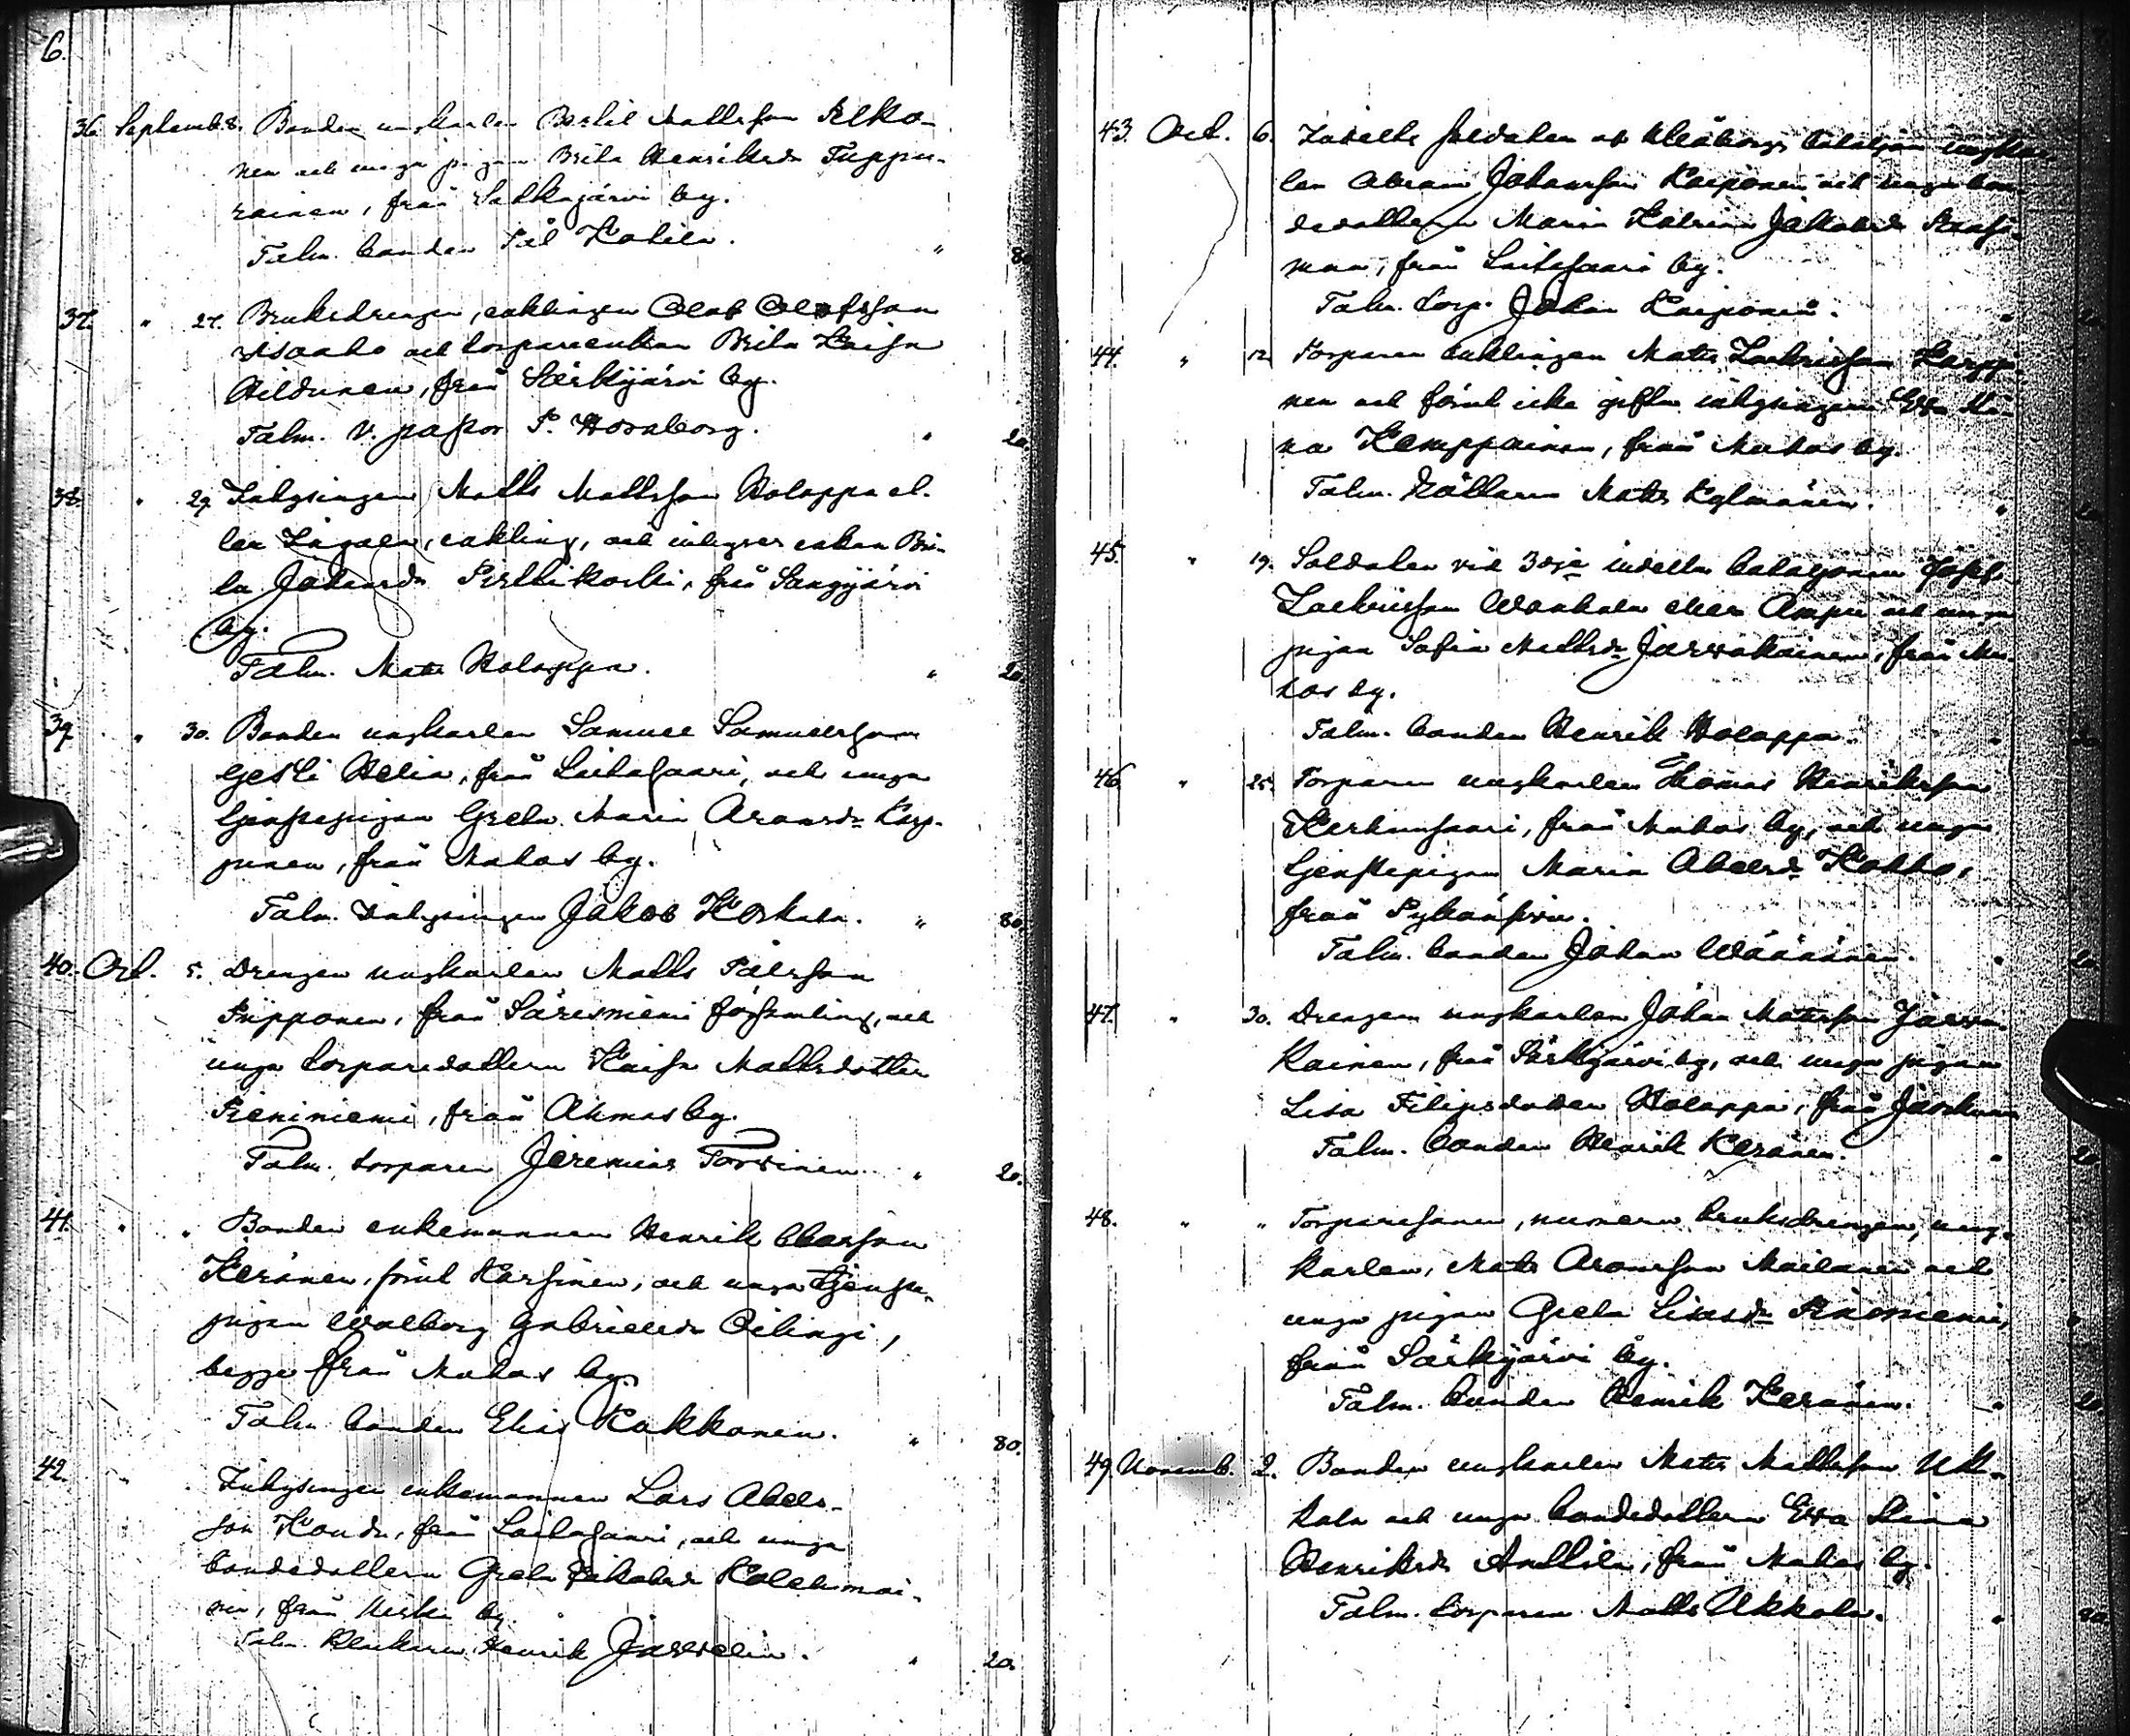 6.
36. Septemb. 8. Bonden ungkarlen Bertil Mattsson Pelko-
nen och unga pigan Brita Henriksdr Tuppu-
rainen, från Sakkajärvi by.
Talm. bonden Påhl Kotila. " 80
37. " 27. Bruksdrengen, enklingen Olof Olofsson
Isoaho och torpareenkan Brita Kaisa
Hildunen, från Särkijärvi by.
Talm. v. pastor P. Hornborg. " 20
38. " 29. Inhysingen Matts Mattsson Holappa el-
ler Lågala, enkling, och inhyses enkan Bri-
ta Johansdr Perttikoski, från Sangijärvi
by.
Talm. Mats Holappa. " 20
39. " 30. Bonden ungkarlen Samuel Samuelsson
Gesti Helia, från Laitasaari, och unga
tjenstepigan Greta Maria Aronsdr Karp-
pinen, från Muhos by.
Talm. Inhysingen Jakob Koskela. " 80.
40. Oct. 5. Drengen ungkarlen Matts Pålsson
Piipponen, från Säresniemi församling, och
unga torparedottern Kaisa Mattsdotter
Pieniniemi, från Ahmas by.
Talm. torparen Jeremias Torvinen " 20.
41. " " Bonden enkemannen Henrik Olarson
Keränen, förut Karsinen, och unga tjenste-
pigan Walborg Gabrielsdr Pilingi,
begge från Muhos by.
Talm. bonden Elias Kokkonen. " 80.
42. " Inhysingen enkemannen Lars Abels-
son Konda, från Laitasaari, och unga
bondedottern Greta Jakobsdr Kolehmai-
nen, från by.
Talm. Klockaren Henrik Jarvelin. " 20.
43. Oct. 6. Indelte soldaten af Uleåborgs bataljon ungkar-
len Abram Johansson Kaiponen och unga bon-
dedottern Maria Katrina Jakobsdr
från Laitasaari by.
Talm. torp. Johan Kaiponen. " 20
44. " 12. Torparen enklingen Mats Zachrisson Karpp-
nen och förut icke gifta inhysingen Eva Sti-
na Kemppainen, från Muhos by.
Talm. Källaren Mats Kylmänen. " 20
45. " 19. Soldaten vid 3dje indelta bataljonen Josef
Zachrisson Wanhala eller Ampu och unga
pigan Sofia Mattsdr Järvakainen, från Mu-
hos by.
Talm. bonden Henrik Holappa. " 20
46. " 25. Torparen ungkarlen Thomas Henriksson
Kerkunsaari, från Muhos by, och unga
tjenstepigan Maria Abelsdr Kokko,
från Pyhänsivu.
Talm. bonden Johan Wäänänen. " 20
47. " 30. Drengen ungkarlen Johan Matsson Järva-
kainen, från Särkijärvi by, och unga pigan
Lisa Filipsdotter Holappa, från
Talm. bonden Henrik Keränen. " 20
48. " " Torparesonen, numera bruksdrengen, ung-
karlen, Mats Aronsson Mailanen och
unga pigan Greta Lisasdr Päiviniemi,
från Särkijärvi by.
Talm. bonden Henrik Keränen. " 20
49. Novemb. 2. Bonden ungkarlen Mats Mattsson Uk-
kola och unga bondedottern Eva Stina
Henriksdr Anttila, från Muhos by.
Talm. torparen Matts Ukkola. " 20